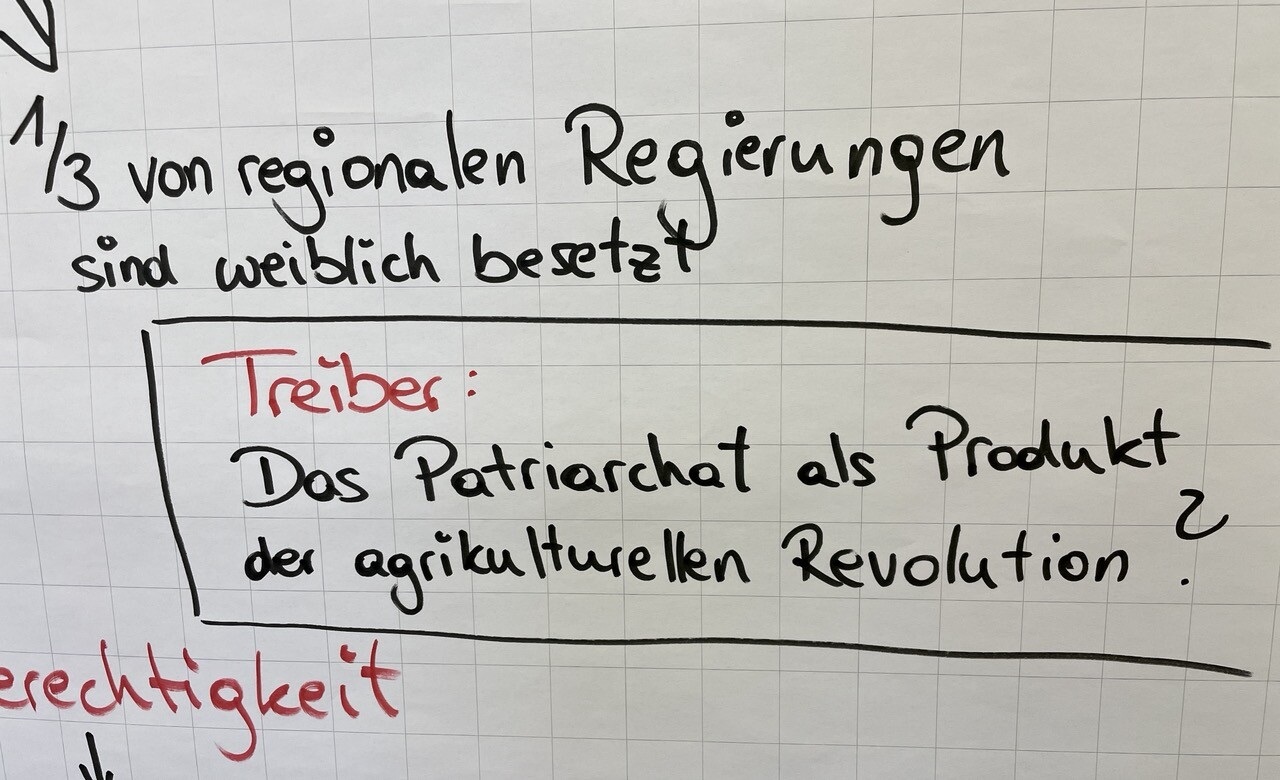 1/3 von regionalen Regierungen
sind weiblich besetzt
Treiber:
Das Patriarchat als Produkt
der agrikulturellen Revolution ?
erechtigkeit